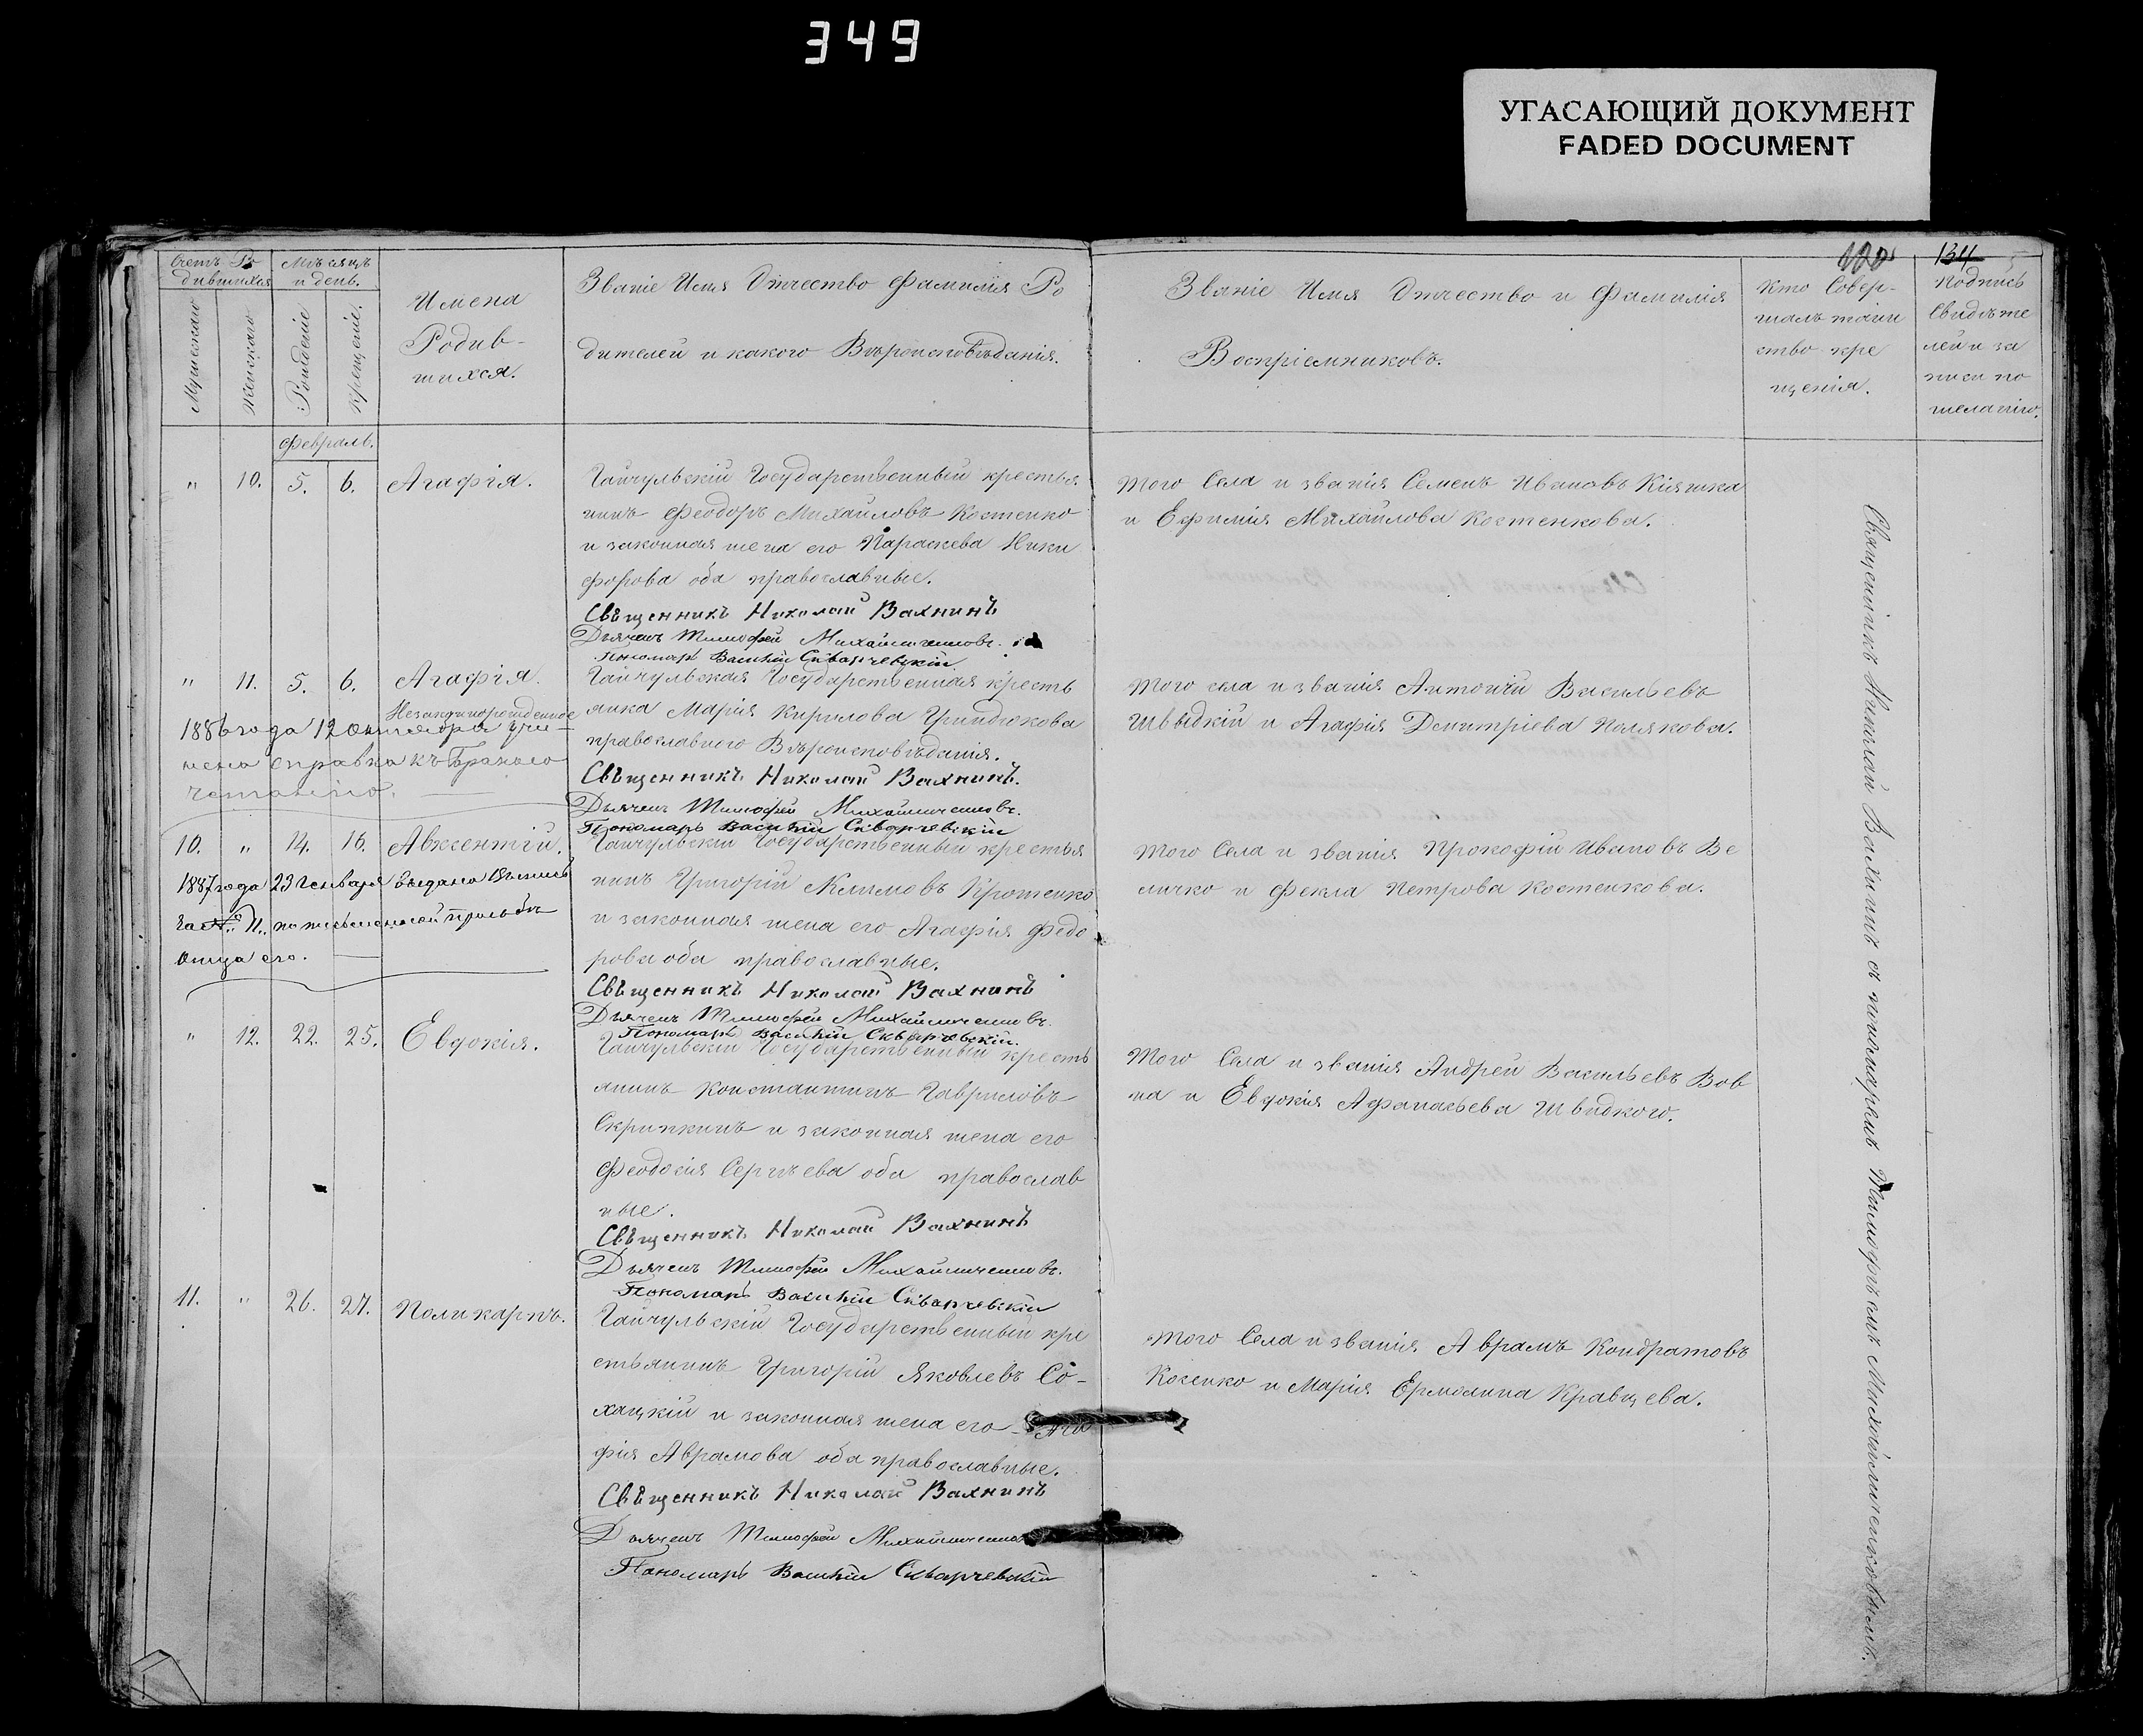 349
УГАСАЮЩИЙ ДОКУМЕНТ
FADED DOCUMENT
134
Счетъ Ро
дившихся
Мужескаго
Женскаго
Мѣсяцъ
и день.
Рожденіе
Крещеніе.
Имена
Родив-
шихся.
Званіе Имя Отчество Фамилія Ро
дителей и какого Вѣроисповѣданія.
Званіе Имя Отчество и Фамилія
Воспріемниковъ.
Кто Совер-
шалъ таин
ство кре
щенія.
Подпись
Свидѣте
лей и за
писи по
желанію.
Февраль.
" 10. 5. 6. Агафія.
Гайчульскій Государственный крестья
нинъ Феодоръ Михайловъ Костенко
и законная жена его Параскева Ники
форова оба православные.
Священникъ Николай Вахнинъ
Дьячекъ Тимофей Михайличенковъ.
Пономарь Василій Скварчевскій
Того Села и званія Семенъ Ивановъ Кияшка
и Ефимія Михайлова Костенкова.
" 11. 5. 6. Агафія.
Незаконнорожденное
1886 года 12 Октября учи-
нена справка къ Бракосо
четанію.
Гайчульская Государственная кресть
янка Марія Кирилова Гриндюкова
православного Вѣроисповѣданія.
Священникъ Николай Вахнинъ.
Дьячекъ Тимофей Михайличенковъ.
Пономарь Василій Скварчевскій
Того села и званія Антоній Васильевъ
Швыдкій и Агафія Дмитріева Полякова.
10. " 14. 16. Авксентій.
1887 года 23 Генваря выдана Выпись
за № 11. по письменной прозьбѣ
Отца его.
Гайчульскій Государственный крестья
нинъ Григорій Климовъ Кротенко
и законная жена его Агафія Федо
рова оба православные.
Священникъ Николай Вахнинъ
Дьячекъ Тимофей Михайличенковъ.
Пономарь Василій Скварчевскій.
Того Села и званія Прокофій Ивановъ Ве
личко и Фекла Петрова Костенкова.
" 12. 22. 25. Евдокія.
Гайчульскій Государственный кресть
янинъ Константинъ Гавриловъ
Скрипкинъ и законная жена его
Феодосія Сергѣева оба православ
ные.
Священникъ Николай Вахнинъ
Дьячекъ Тимофей Михайличенковъ.
Пономарь Василій Скварчевскій
Того Села и званія Андрей Васильевъ Вов
на и Евдокія Афанасьева Швидкого.
11. " 26. 27. Поликарпъ.
Гайчульскій Государственный кре
стьянинъ Григорій Яковлевъ Со-
хацкій и законная жена его Ага
фія Аврамова оба православные.
Священникъ Николай Вахнинъ
Дьячекъ Тимофей Михайличенков
Пономарь Василій Скварчевскій
Того Села и званія Аврамъ Кондратовъ
Косенко и Марія Ермолина Кравцева.
Священникъ Николай Вахнинъ съ пономаремъ Тимофѣемъ Михайличенковымъ.